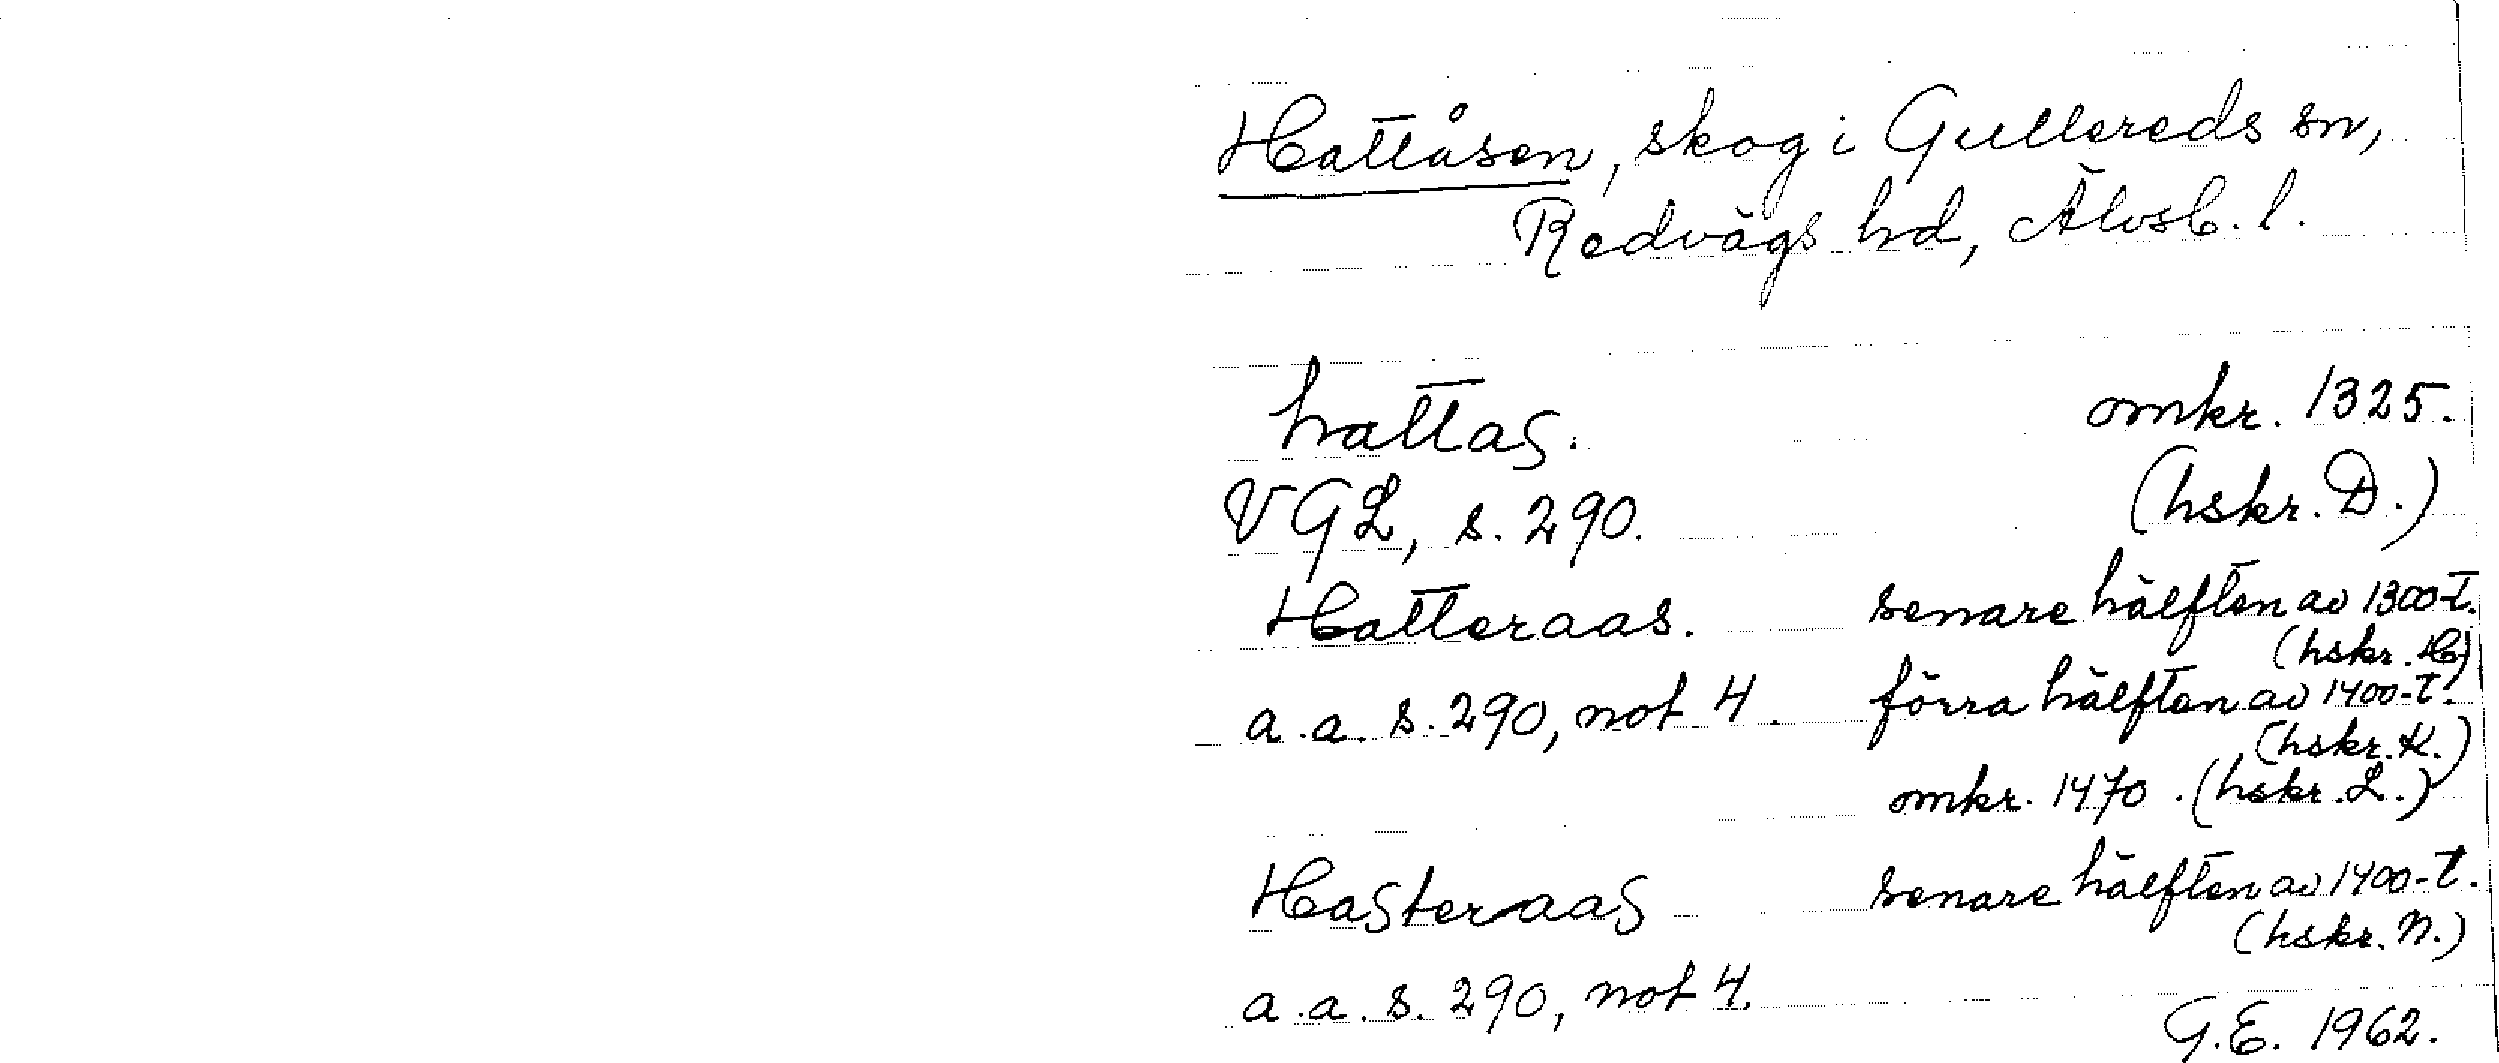 Hattåsen, skog i Gullereds sn,
Redvägs hd, Älvsb. l.
hattas. omkr. 1325.
VGL, s. 290. (hskr. D.)
Hatteraas. senare hälften av 1300-t.
(hskr. H)
a.a. s. 290, not 4. förra hälften av 1400-t.
(hskr. K.)
omkr. 1470. (hskr. L.)
Hasteraas senare hälften av 1400-t.
(hskr. N.)
a.a. s. 290, not 4.
G.E. 1962.